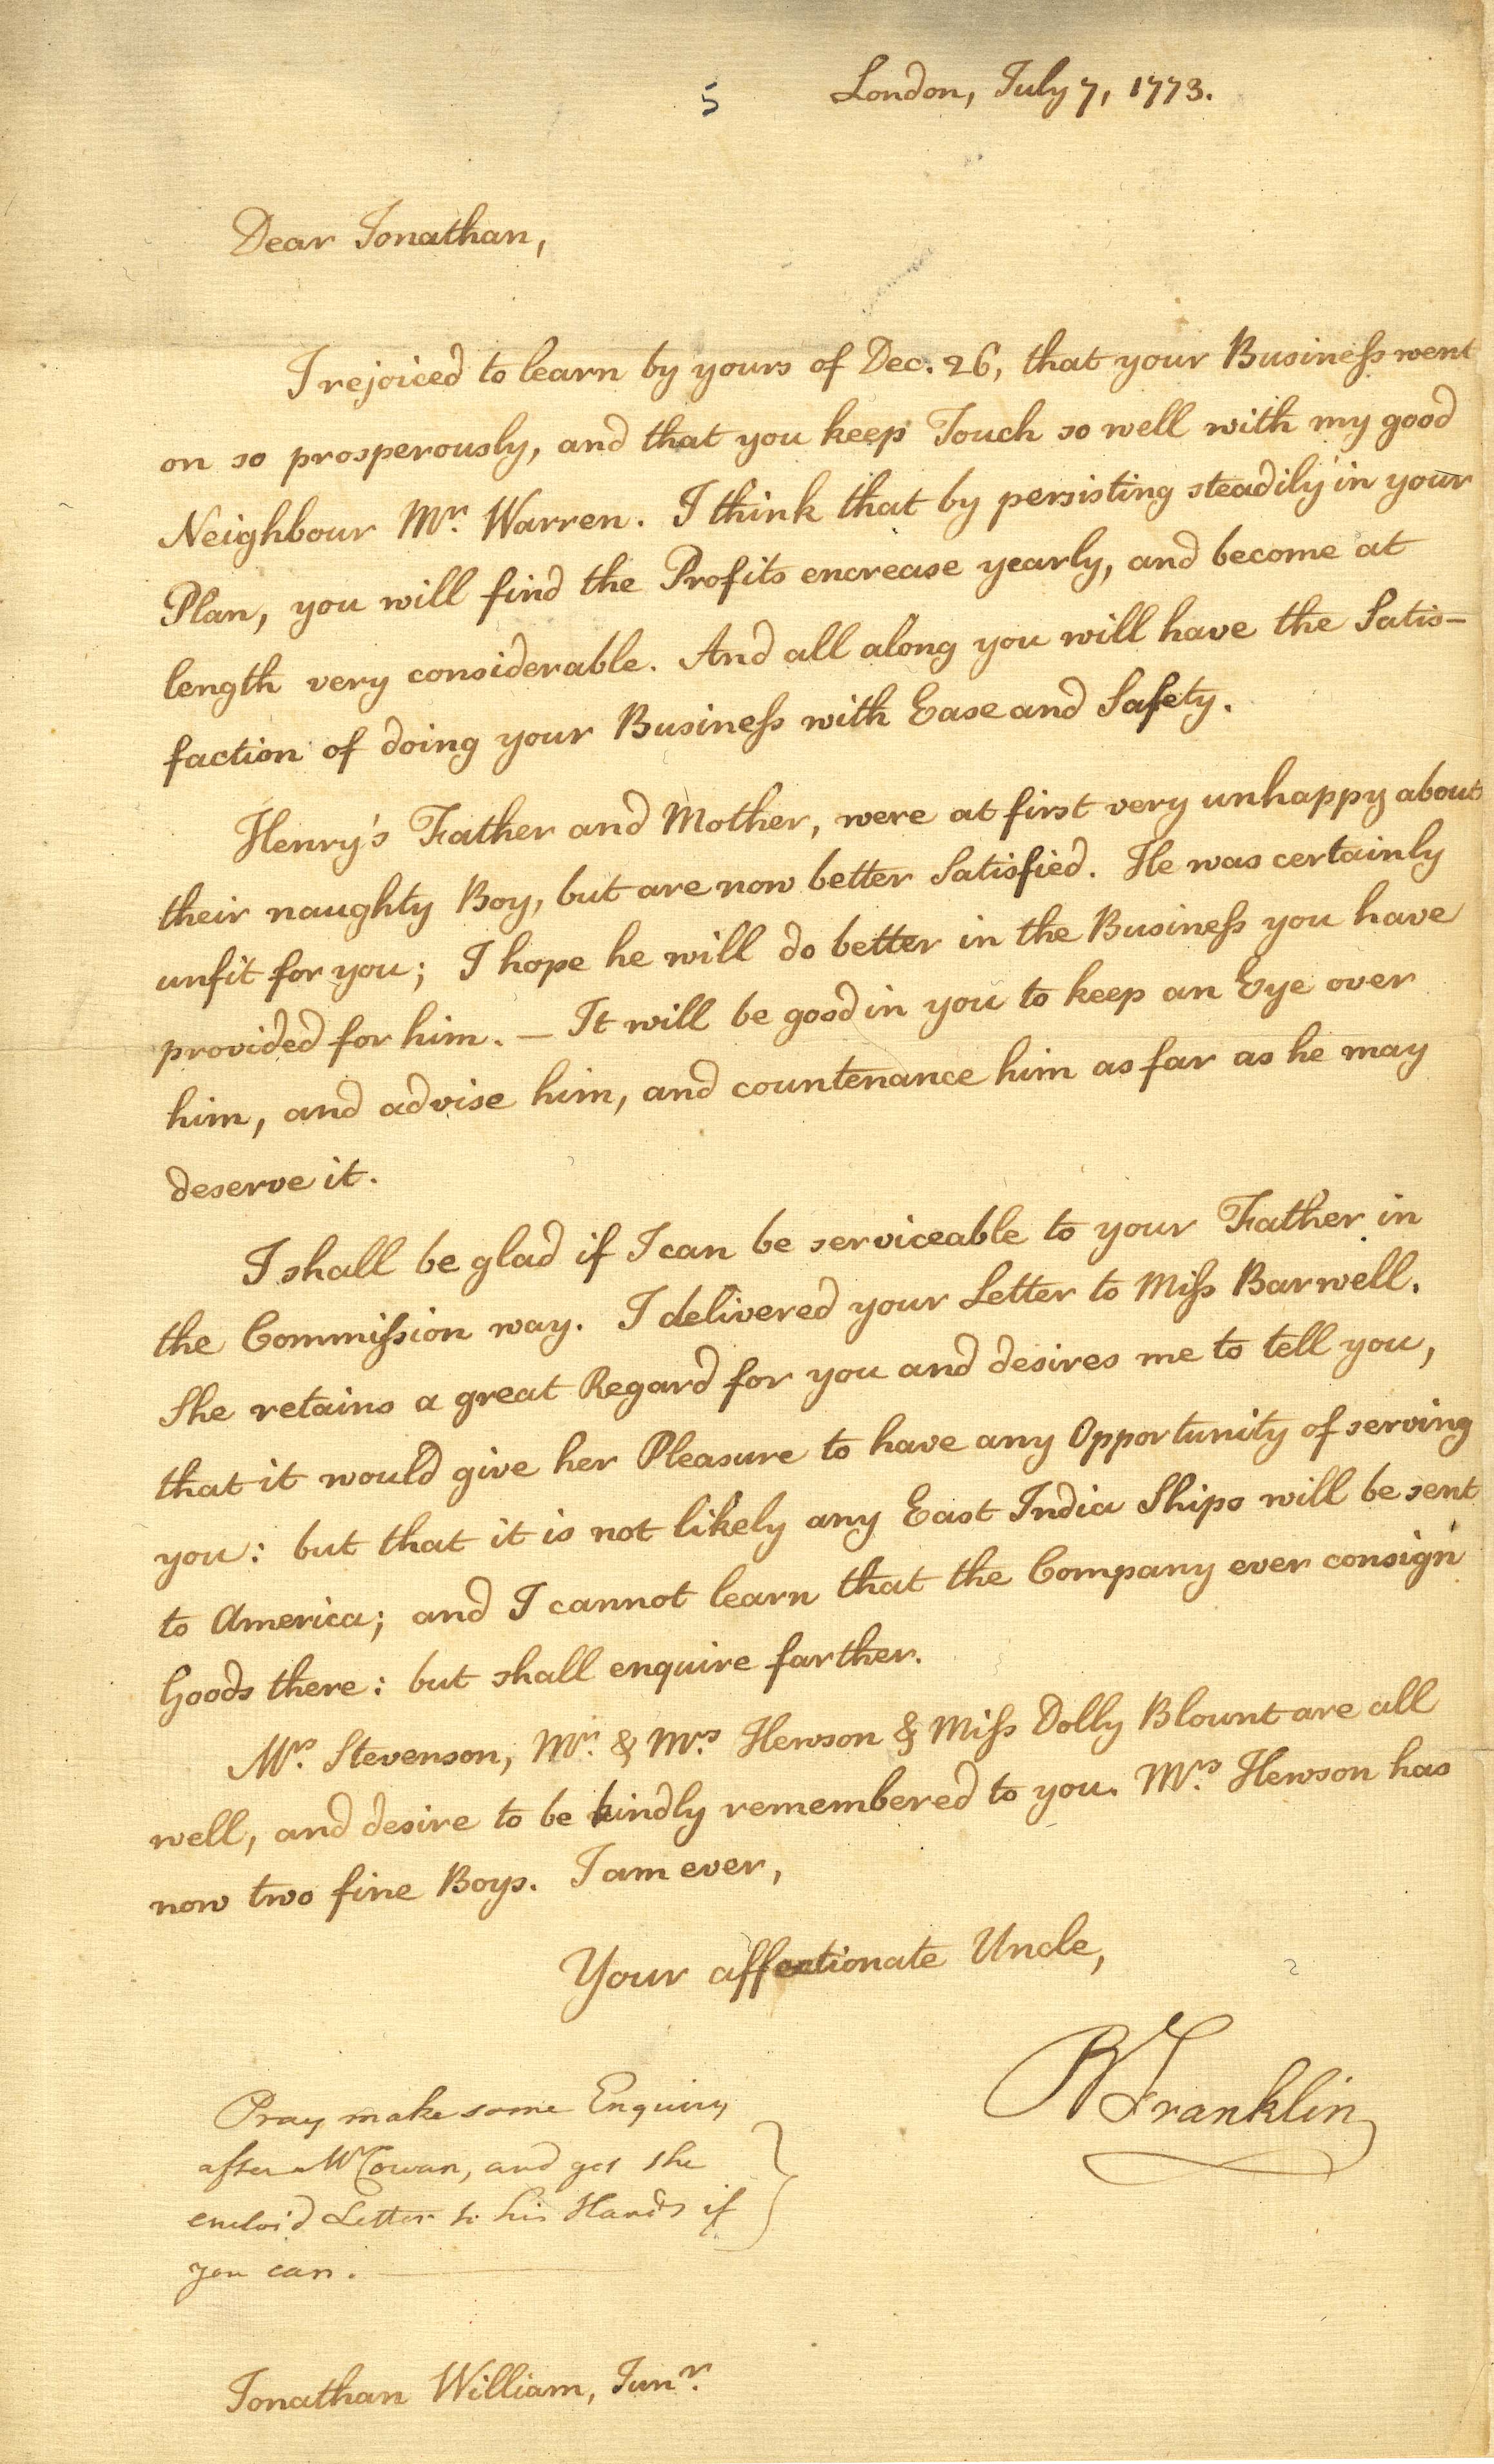 5
London, July 7, 1773.
Dear Jonathan,
I rejoiced to learn by yours of Dec. 26, that your Business went
on so prosperously, and that you keep Touch so well with my good
Neighbour Mr. Warren. I think that by persisting steadily in your
Plan, you will find the Profits encrease yearly, and become at
length very considerable. And all along you will have the Satis-
faction of doing your Business with Ease and Safety.
Henry's Father and Mother, were at first very unhappy about
their naughty Boy, but are now better Satisfied. He was certainly
unfit for you; I hope he will do better in the Business you have
provided for him. — It will be good in you to keep an Eye over
him, and advise him, and countenance him as far as he may
deserve it.
I shall be glad if I can be serviceable to your Father in
the Commission way. I delivered your Letter to Miss Barwell.
She retains a great Regard for you and desires me to tell you,
that it would give her Pleasure to have any Opportunity of serving
you: but that it is not likely any East India Ships will be sent
to America; and I cannot learn that the Company ever consign
Goods there: but shall enquire farther.
Mrs. Stevenson, Mr. & Mrs. Hewson & Miss Dolly Blount are all
well, and desire to be kindly remembered to you. Mrs. Hewson has
now two fine Boys. I am ever,
Your affectionate Uncle,
B Franklin
Pray make some Enquiry
after Mr Cowan, and get the
enclos'd Letter to his Hands if
you can.
Jonathan William, Junr.